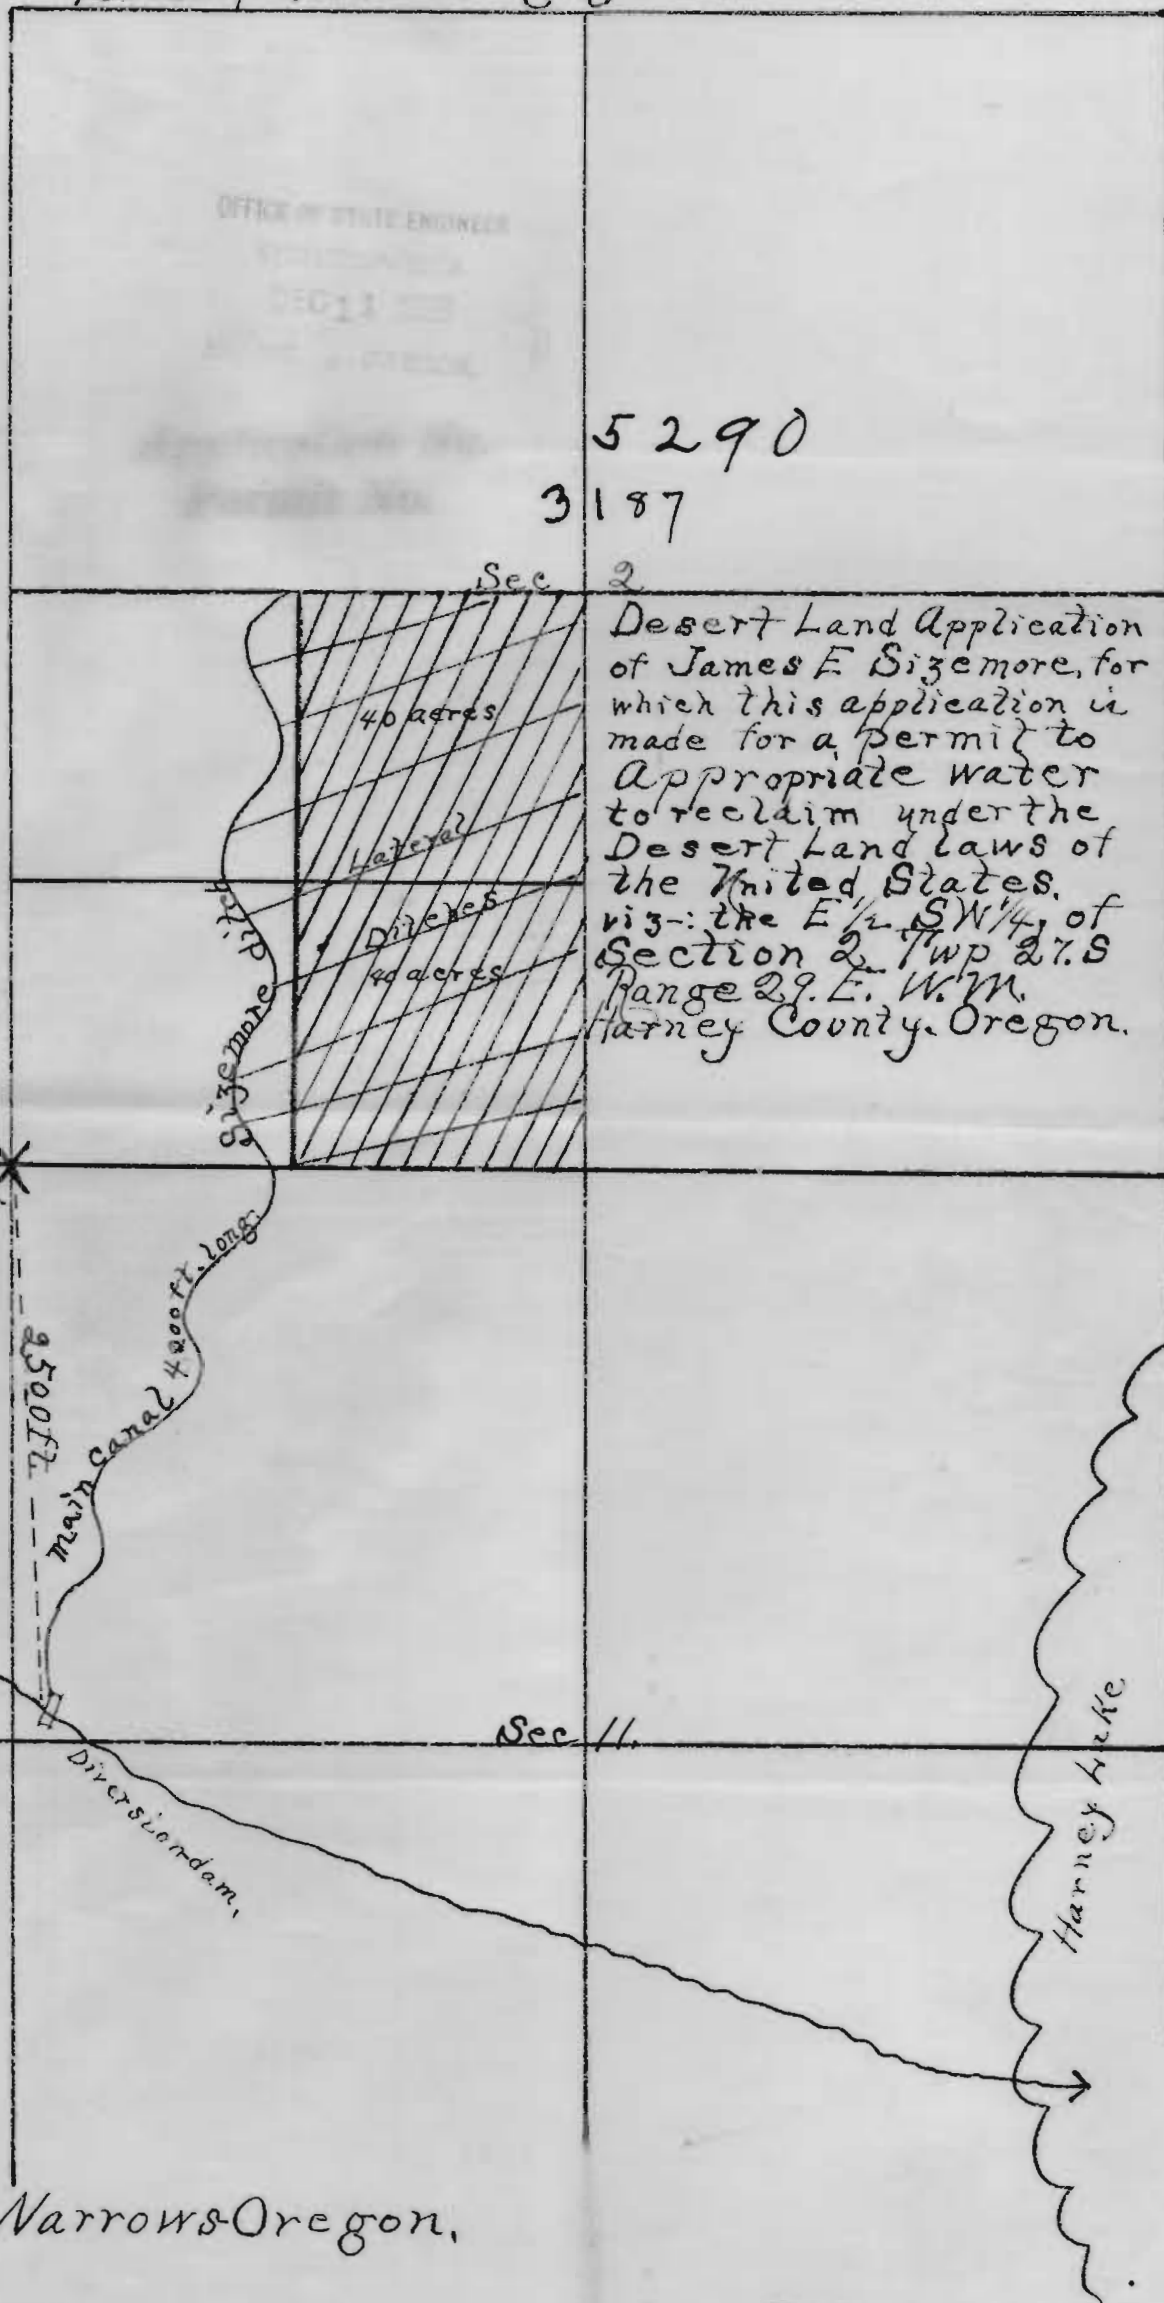 OFFICE OF STATE ENGINEER
DEC 11
Application No.
Permit No.
5290
3187
Sec 2
Desert Land Application
of James E Sizemore, for
which this application is
made for a permit to
Appropriate water
to reclaim under the
Desert Land laws of
the United States.
viz-: the E 1/2 SW 1/4, of
Section 2 Twp 27. S
Range 29. E. W. M.
Harney County. Oregon.
40 acres
Lateral
Ditches
40 acres
Sizemore ditch
main canal 4200 ft. long.
2500 ft.
Sec 11.
Diversion dam,
Harney Lake
Narrows Oregon.